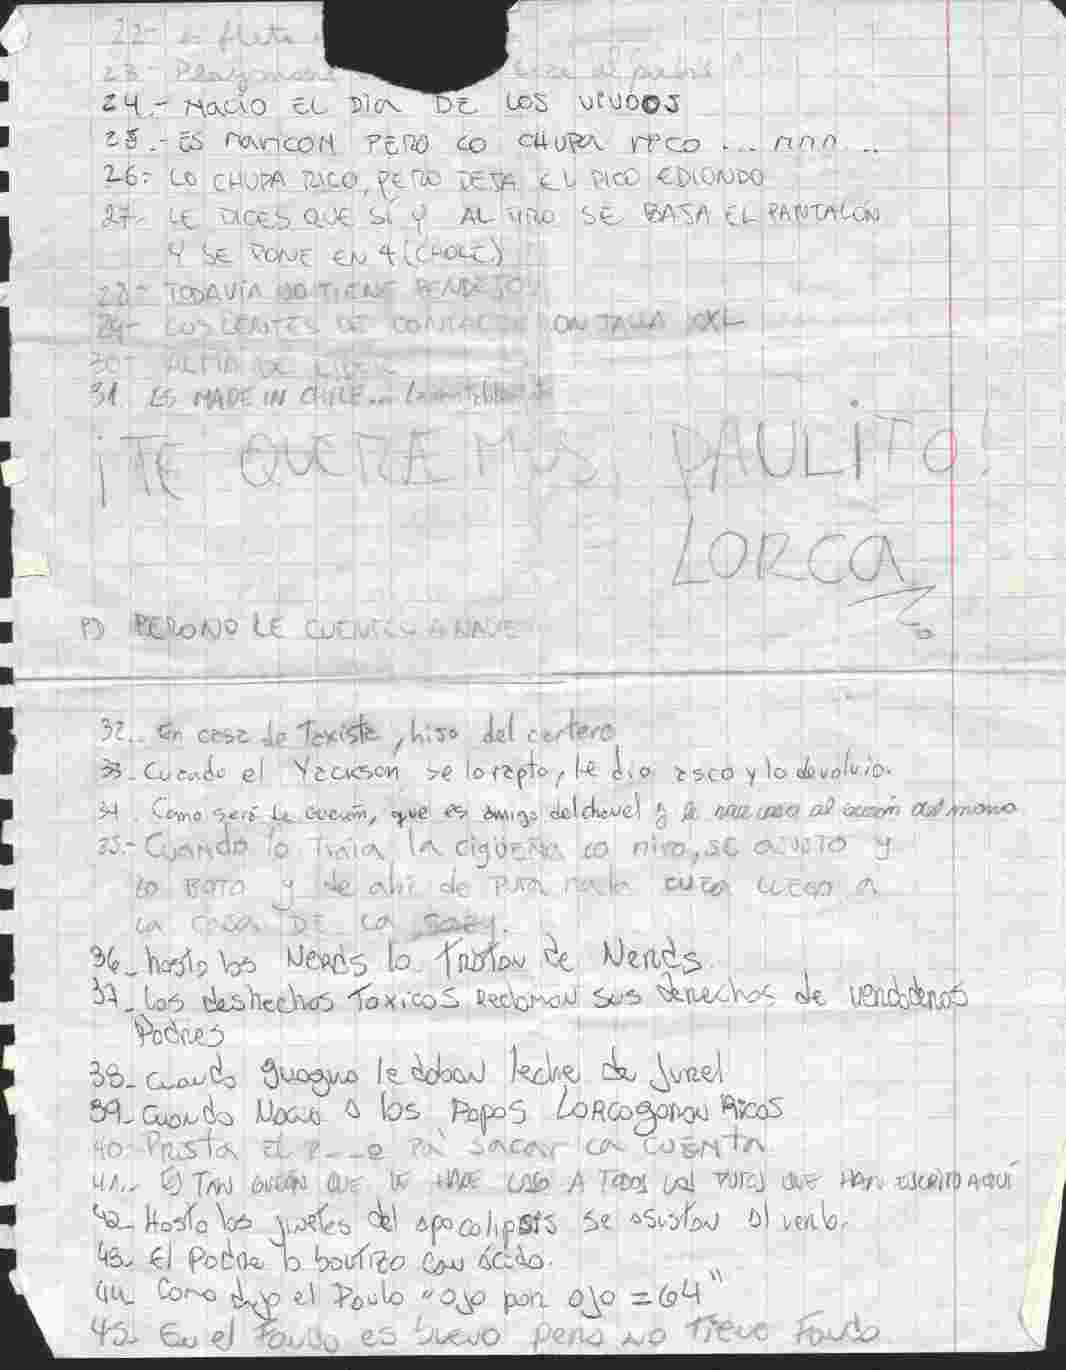 22- es fleta
23-
24.- NACIO EL DIA DE LOS VIUDOS
25.- ES MARICON PERO LO CHUPA RICO ... mmm...
26- LO CHUPA RICO, PERO DEJA EL PICO EDIONDO
27- LE DICES QUE SÍ Y AL TIRO SE BAJA EL PANTALÓN
Y SE PONE EN 4 (CHOLE)
28- TODAVÍA NO TIENE PENDEJOS
29- LOS LENTES DE CONTACTO SON TALLA XXL
30- ALMA DE LIDER
31. ES MADE IN CHILE...
¡TE QUEREMOS PAULITO!
LORCA
PD PERO NO LE CUENTES A NADIE
32.- En casa de Taxista, hijo del cartero
33.- Cuando el Yackson se lo rapto, le dio asco y lo devolvio.
34. Como será de que es amigo del chavel y le al del mono
35.- Cuando lo traia la cigüeña lo miro, se asusto y
lo boto y de ahi de pura mala cuea llego a
la casa DE La
36- hasta los Nerds lo tratan de Nerds.
37- Los deshechos toxicos reclaman sus derechos de verdaderos
Padres
38- cuando guagua le daban leche de Jurel
39- cuando Nacio a los Papas Lorcaganan Ricos
40- Presta el p---o pa' sacar la cuenta
41.- ES TAN QUE LE HACE CASO A TODOS LOS PUTOS QUE HAN ESCRITO AQUÍ
42- Hasta los jinetes del apocalipsis se asustan al verlo.
43- El Padre lo bautizo con ácido.
44- Como dijo el Paulo "ojo por ojo = 64"
45- En el Fondo es bueno pero no tiene Fondo